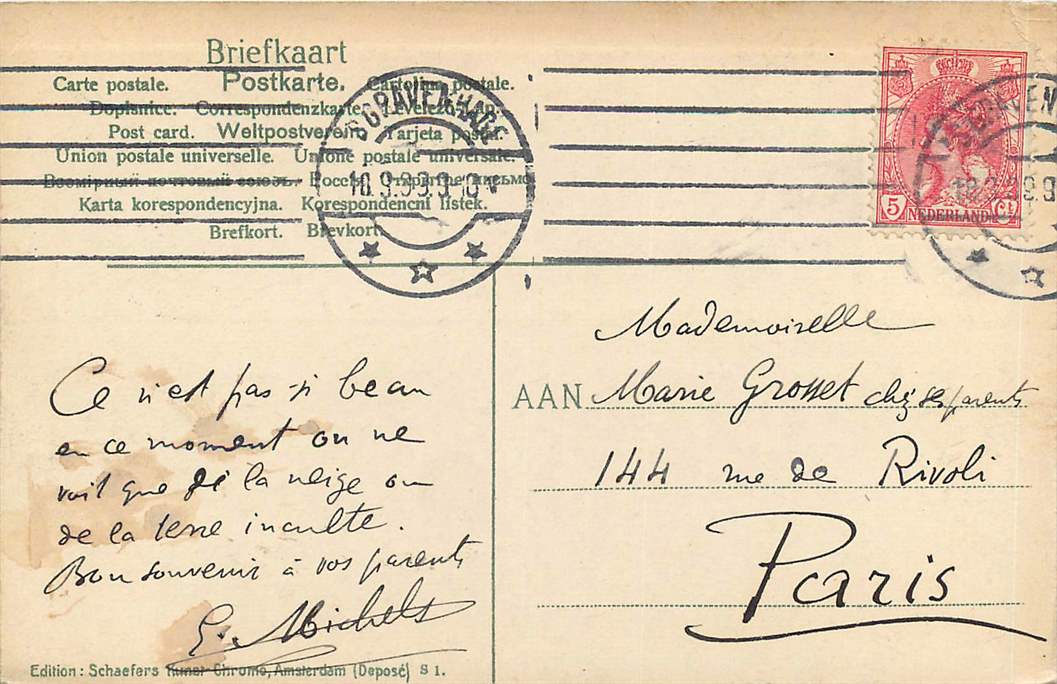 Briefkaart
Carte postale. Postkarte. Cartolina postale.
Dopisnice. Correspondenzkarte.
Post card. Weltpostverein. Tarjeta postal.
Union postale universelle. Unione postale universale.
Всемірный почтовый союзъ. Россія. Открытое письмо.
Karta korespondencyjna. Korespondencni listek.
Brefkort. Brevkort.
'SGRAVENHAGE
5 NEDERLAND Ct
Mademoiselle
AAN Marie Grosset chez ses parents
144 rue de Rivoli
Paris
Ce n'est pas si beau
en ce moment on ne
voit que de la neige ou
de la terre inculte.
Bon souvenir à vos parents
G. Michels
Edition: Schaefers Kunst-Chromo, Amsterdam (Deposé) S 1.